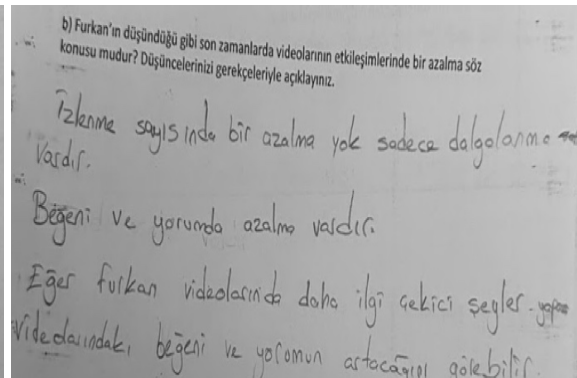 b) Furkan'ın düşündüğü gibi son zamanlarda videolarının etkileşimlerinde bir azalma söz
konusu mudur? Düşüncelerinizi gerekçeleriyle açıklayınız.
İzlenme sayısında bir azalma yok sadece dalgalanma
vardır.
Beğeni ve yorumda azalma vardır.
Eğer furkan videolarında daha ilgi çekici şeyler yapsa
videolarındaki beğeni ve yorumun artacağını görebilir.